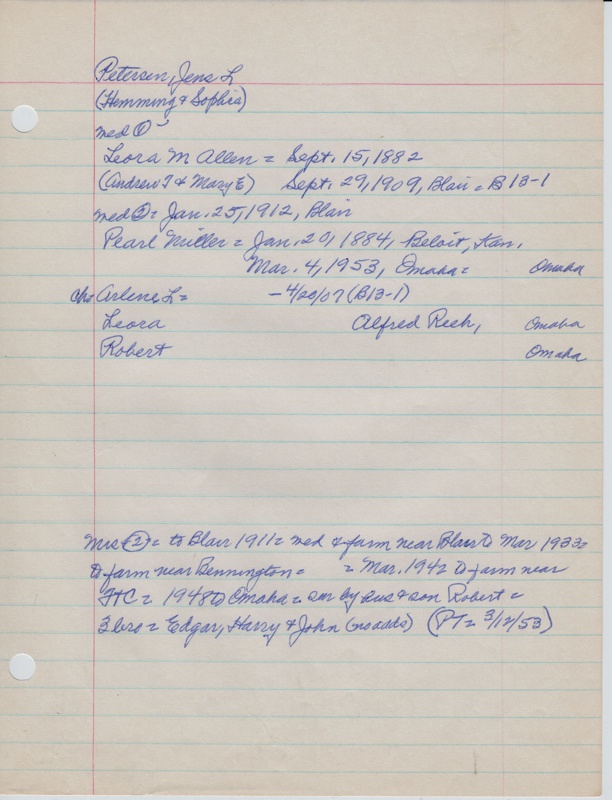 Petersen, Jens L
(Hemming & Sophia)
med ①
Leora M Allen = Sept. 15, 1882
(Andrew J & Mary E) Sept. 29, 1909, Blair = B 13-1
med ② = Jan. 25, 1912, Blair
Pearl Miller = Jan. 20, 1884, Beloit, Kan.
Mar. 4, 1953, Omaha = Omaha
ch = Arlene L = - 4/20/07 (B13-1)
Leora Alfred Resh, Omaha
Robert Omaha
Mrs ② = to Blair 1911 = med & farm near Blair to Mar 1933 =
to farm near Bennington = = Mar. 1942 to farm near
FtC = 1948 to Omaha = sur by hus & son Robert =
3 bro = Edgar, Harry & John (no adds) (PT = 3/12/53)